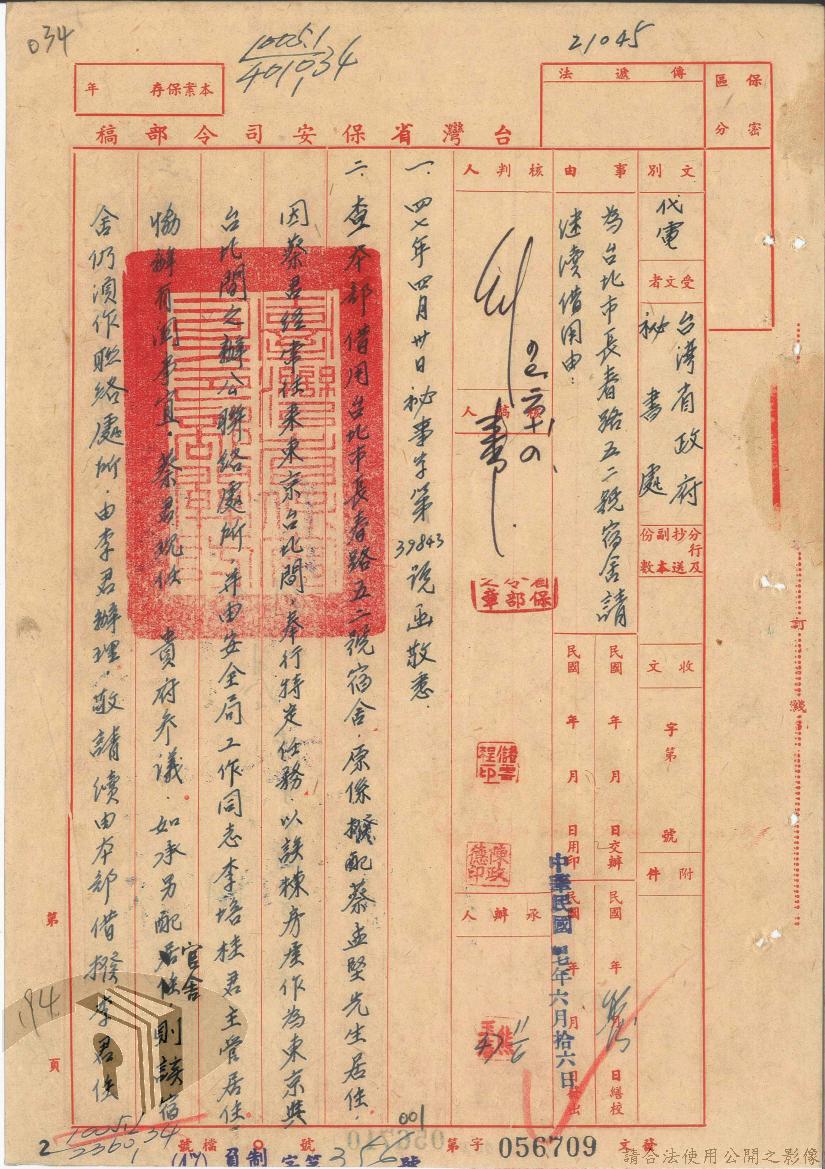 034
10051
401034
21045
本案保存 年
傳遞法
保密區分
台灣省保安司令部稿
文別
代電
受文者
台灣省政府
秘書處
事由
為台北市長春路五二號宿舍請
继续借用由：
核判人
核稿人
承辦人
分行及抄送副本份數
收文 字第 號
附件
民國 年 月 日交辦
民國 年 月 日繕校
民國 年 月 日用印
中華民國四七年六月拾六日
一、四七年四月卅日秘事字第39843號函敬悉。
二、查本部借用台北市長春路五二號宿舍，原係撥配蔡孟堅先生居住，
因蔡君經常往來東京台北間，奉行特定任務，以該棟房屋作為東京與
台北間之辦公聯絡處所，并由安全局工作同志李培桂君主管居住
協辦有関事宜，蔡君现任 貴府參議，如承另配官舍居住則該宿
舍仍須作聯絡處所，由李君辦理，敬請續由本部借撥李君住
訂線
第 頁
194
2
10051
2360134
001
檔號
發文 字第 056709 號
請合法使用公開之影像